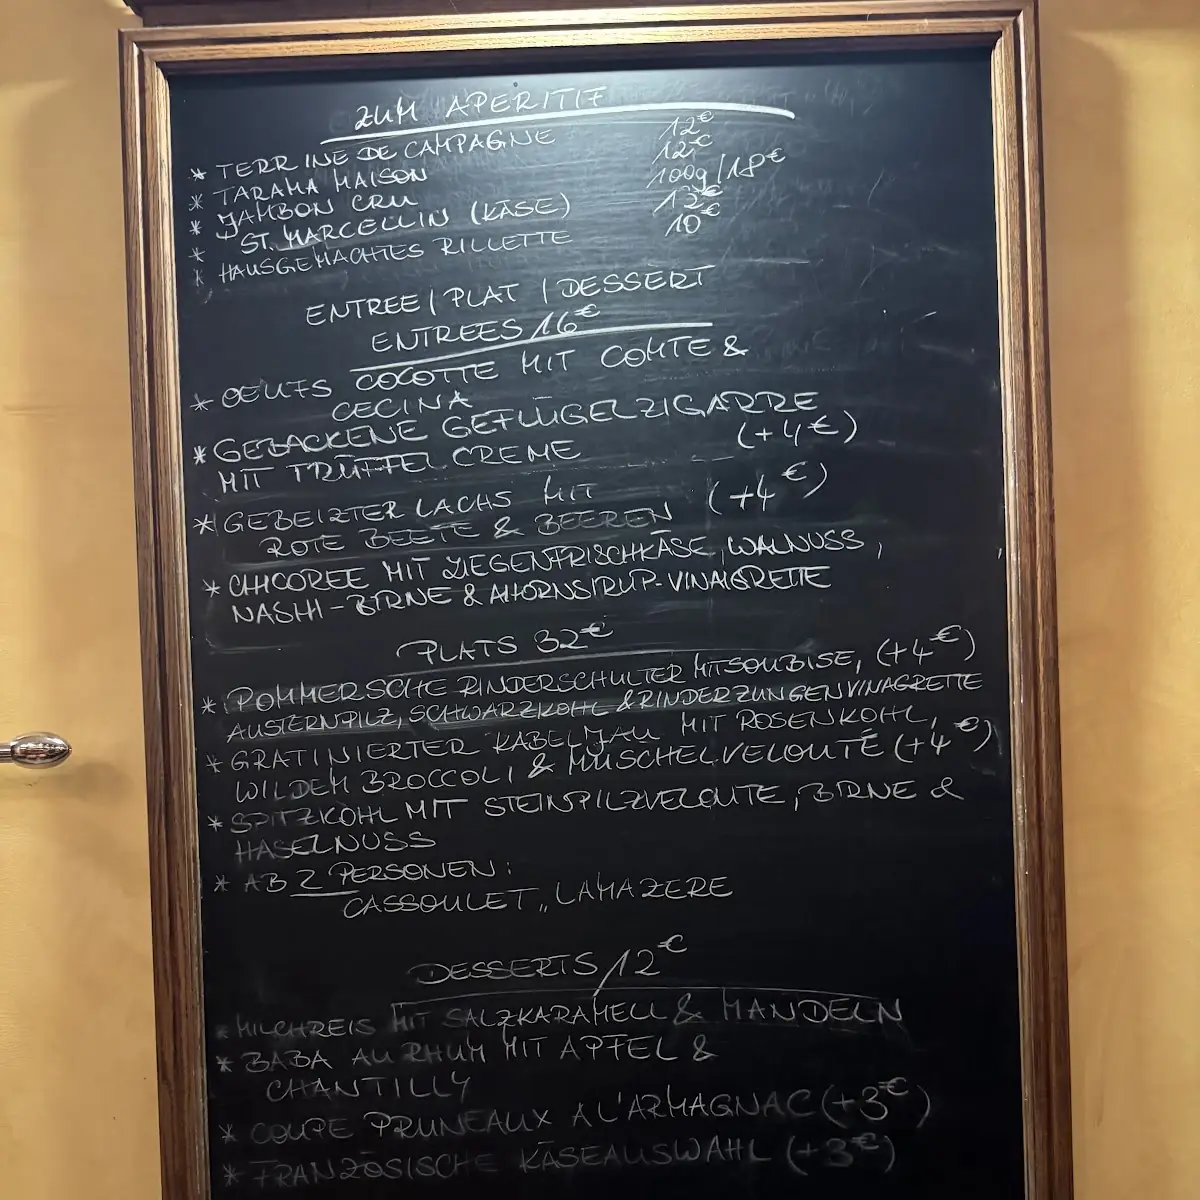 ZUM APERITIF
* TERRINE DE CAMPAGNE 12€
* TARAMA MAISON 12€
* JAMBON CRU 100g/18€
* ST. MARCELLIN (KÄSE) 12€
* HAUSGEMACHTES RILLETTE 10€
ENTREE/PLAT/DESSERT
ENTREES/16€
* OEUFS COCOTTE MIT COMTE &
CECINA
* GEBACKENE GEFLÜGELZIGARRE
MIT TRÜFFELCREME (+4€)
* GEBEIZTER LACHS MIT
ROTE BEETE & BEEREN (+4€)
* CHICOREE MIT ZIEGENFRISCHKÄSE, WALNUSS,
NASHI-BIRNE & AHORNSIRUP-VINAIGRETTE
PLATS 32€
* POMMERSCHE RINDERSCHULTER MIT SOUBISE, (+4€)
AUSTERNPILZ, SCHWARZKOHL & RINDERZUNGENVINAGRETTE
* GRATINIERTER KABELJAU MIT ROSENKOHL,
WILDEM BROCCOLI & MUSCHELVELOUTÉ (+4€)
* SPITZKOHL MIT STEINPILZVELOUTE, BIRNE &
HASELNUSS
* AB 2 PERSONEN:
CASSOULET „LAMAZERE
DESSERTS/12€
* MILCHREIS MIT SALZKARAMELL & MANDELN
* BABA AU RHUM MIT APFEL &
CHANTILLY
* COUPE PRUNEAUX A L'ARMAGNAC (+3€)
* FRANZÖSISCHE KÄSEAUSWAHL (+3€)